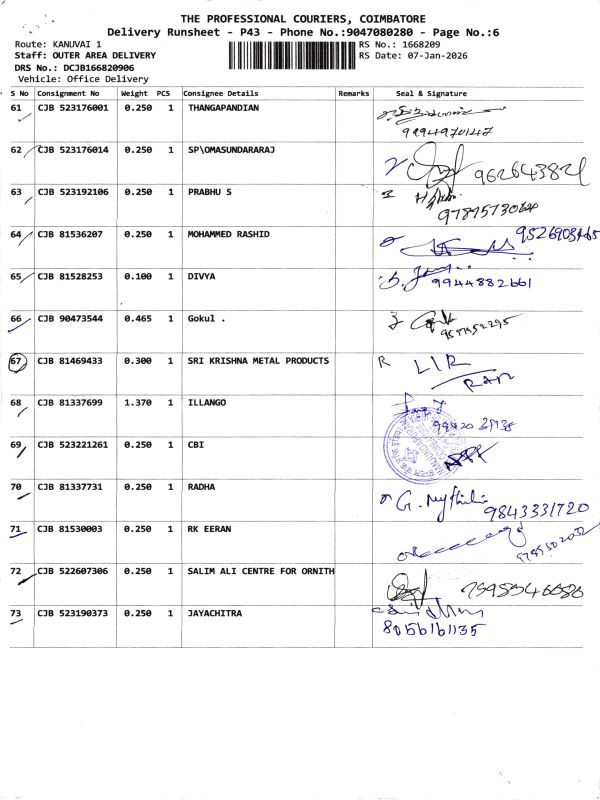 THE PROFESSIONAL COURIERS, COIMBATORE
Delivery Runsheet - P43 - Phone No.:9047080280 - Page No.:6
Route: KANUVAI 1
Staff: OUTER AREA DELIVERY
DRS No.: DCJB166820906
Vehicle: Office Delivery
RS No.: 1668209
RS Date: 07-Jan-2026
S No Consignment No Weight PCS Consignee Details Remarks Seal & Signature
61 CJB 523176001 0.250 1 THANGAPANDIAN
9994970147
62 CJB 523176014 0.250 1 SP\OMASUNDARARAJ
63 CJB 523192106 0.250 1 PRABHU S
64 CJB 81536207 0.250 1 MOHAMMED RASHID
65 CJB 81528253 0.100 1 DIVYA
9944882661
66 CJB 90473544 0.465 1 Gokul .
67 CJB 81469433 0.300 1 SRI KRISHNA METAL PRODUCTS R
68 CJB 81337699 1.370 1 ILLANGO
69 CJB 523221261 0.250 1 CBI
70 CJB 81337731 0.250 1 RADHA
9843331720
71 CJB 81530003 0.250 1 RK EERAN
72 CJB 522607306 0.250 1 SALIM ALI CENTRE FOR ORNITH
73 CJB 523190373 0.250 1 JAYACHITRA
8056161135